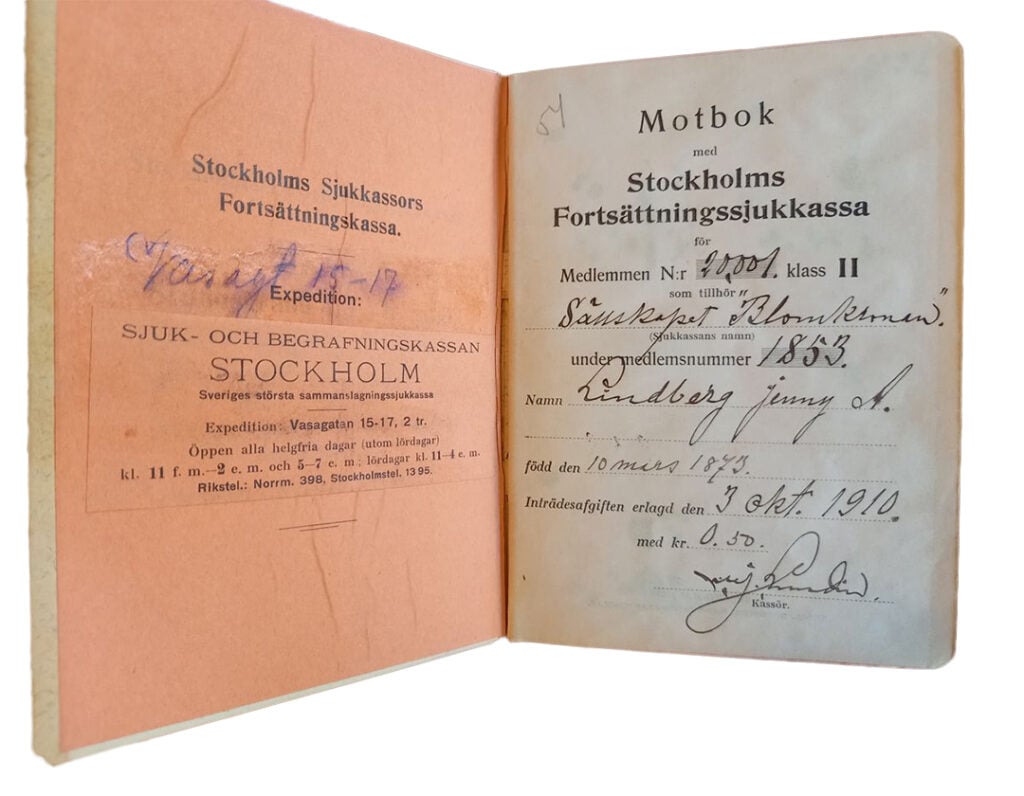 Stockholms Sjukkassors
Fortsättningskassa.
Vasagt 15-17
Expedition:
SJUK- OCH BEGRAFNINGSKASSAN
STOCKHOLM
Sveriges största sammanslagningssjukkassa
Expedition: Vasagatan 15-17, 2 tr.
Öppen alla helgfria dagar (utom lördagar)
kl. 11 f. m.—2 e. m. och 5—7 e. m; lördagar kl. 11—4 e. m.
Rikstel.: Norrm. 398, Stockholmstel. 13 95.
51
Motbok
med
Stockholms
Fortsättningssjukkassa
för
Medlemmen N:r 20,001. klass II
som tillhör
Sällskapet "Blomkronan".
(Sjukkassans namn)
under medlemsnummer 1853.
Namn Lindberg Jenny A.
född den 10 mars 1873.
Inträdesafgiften erlagd den 3 okt. 1910.
med kr. 0.50.
Lundin.
Kassör.